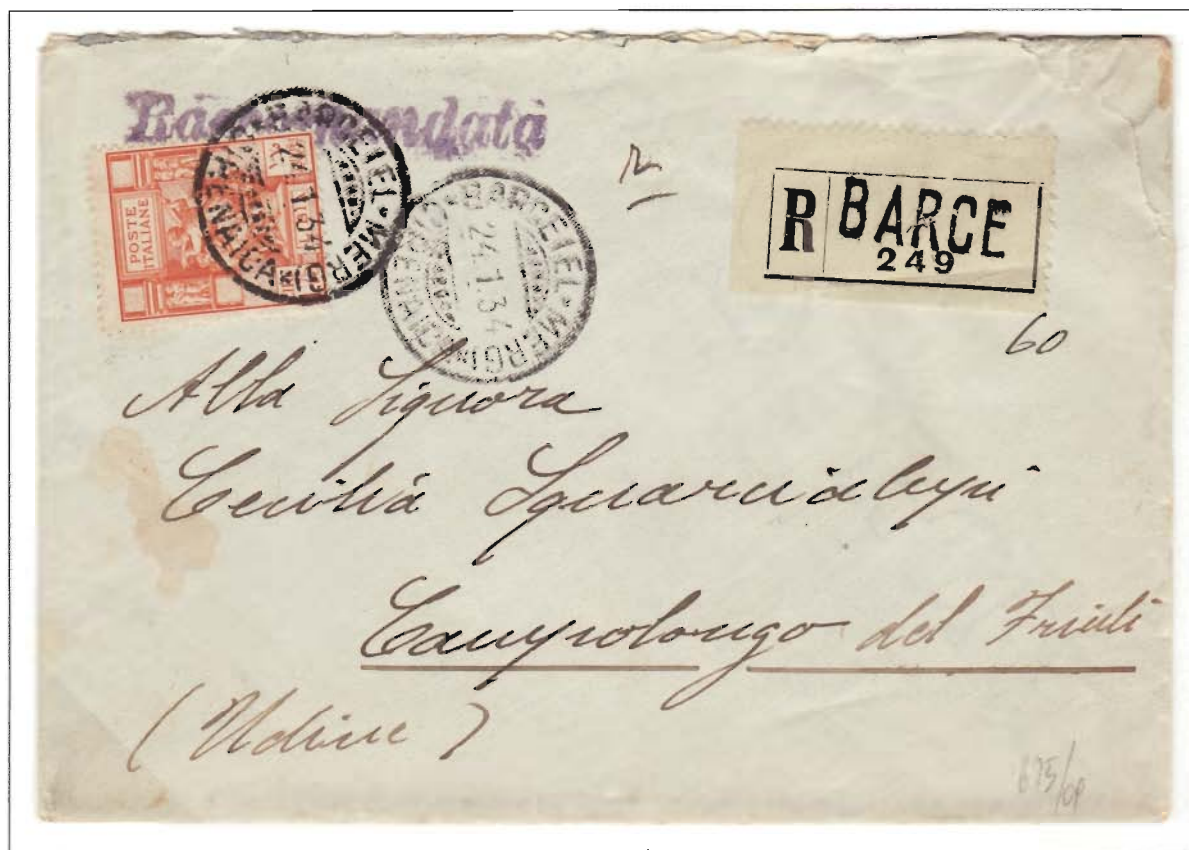 Raccomandata
POSTE
ITALIANE
BARCE (EL·MERG)
CIRENAICA
24.1.34
BARCE (EL·MERG)
CIRENAICA
24.1.34
R BARCE
249
60
Alla Signora
Cecilia Squarcialupi
Campolongo del Friuli
(Udine)